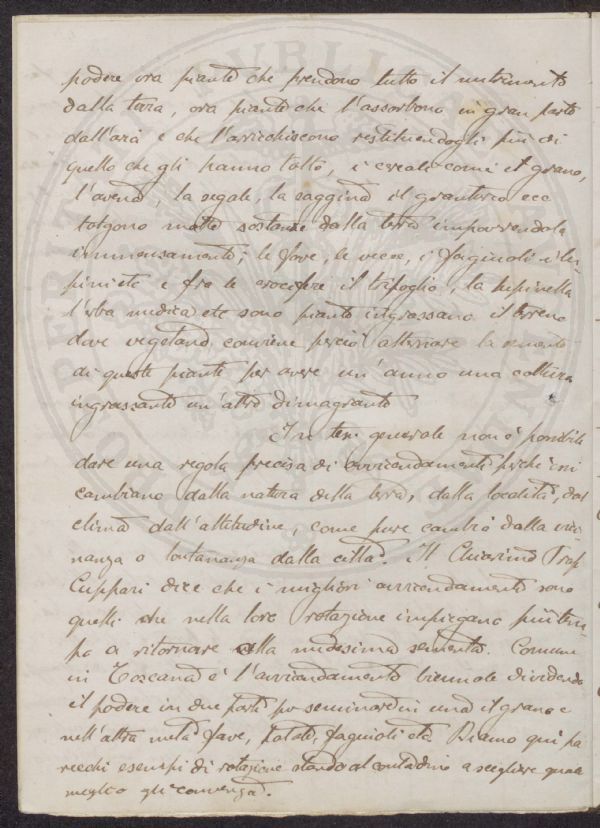 podere ora piante che prendono tutto il nutrimento
dalla terra, ora piante che l'assorbono in gran parte
dall'aria e che l'arricchiscono restituendogli più di
quello che gli hanno tolto, i cereali come il grano,
l'avena, la segale, la saggina il granturco ecc
tolgono molte sostanze dalla terra impoverendola
immensamente; le fave, le vecce, i fagiuoli i lu-
pini etc e fra le crocifere il trifoglio, la lupinella
l'erba medica etc sono piante ingrassano il terreno
dove vegetano, conviene perciò alternare la sementa
di queste piante per avere un'anno una coltura
ingrassante un'altro dimagrante
In tesi generale non è possibile
dare una regola precisa di avvicendamenti perchè essi
cambiano dalla natura della terra, dalla località, dal
clima dall'altitudine, come pure cambia dalla vici
nanza o lontananza dalla città. Il Chiarino Prof
Cuppari dice che i migliori avvicendamenti sono
quelli che nella loro rotazione impiegano più tem-
po a ritornare alla medesima sementa. Comune
in Toscana è l'avvicendamento biennale dividendo
il podere in due parti per seminare in una il grano e
nell'altra metà fave, patate, fagiuoli etc Diamo qui pa
recchi esempi di rotazione stando al contadino a scegliere quale
meglio gli convenga.